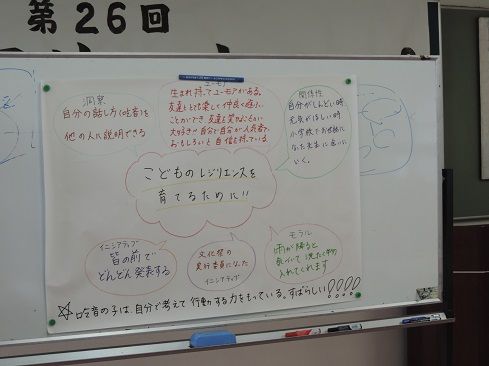 第26回
洞察
自分の話し方(吃音)を
他の人に説明できる
ユーモア
生まれ持ってユーモアがある。
友達ととても楽しく仲良く遊ぶ
ことができ、友達を笑わせることが
大好き!!自分で自分が人気者で
おもしろいと自信を持っている。
関係性
自分がしんどい時
元気がほしい時
小学校でお世話に
なった先生に会いに
いく。
こどものレジリエンスを
育てるために!!
イニシアティブ
皆の前で
どんどん発表する
文化祭の
実行委員になった
イニシアティブ
モラル
雨が降ると
気づいて洗たく物
入れてくれます
☆吃音の子は、自分で考えて行動する力をもっている。すばらしい!!!!